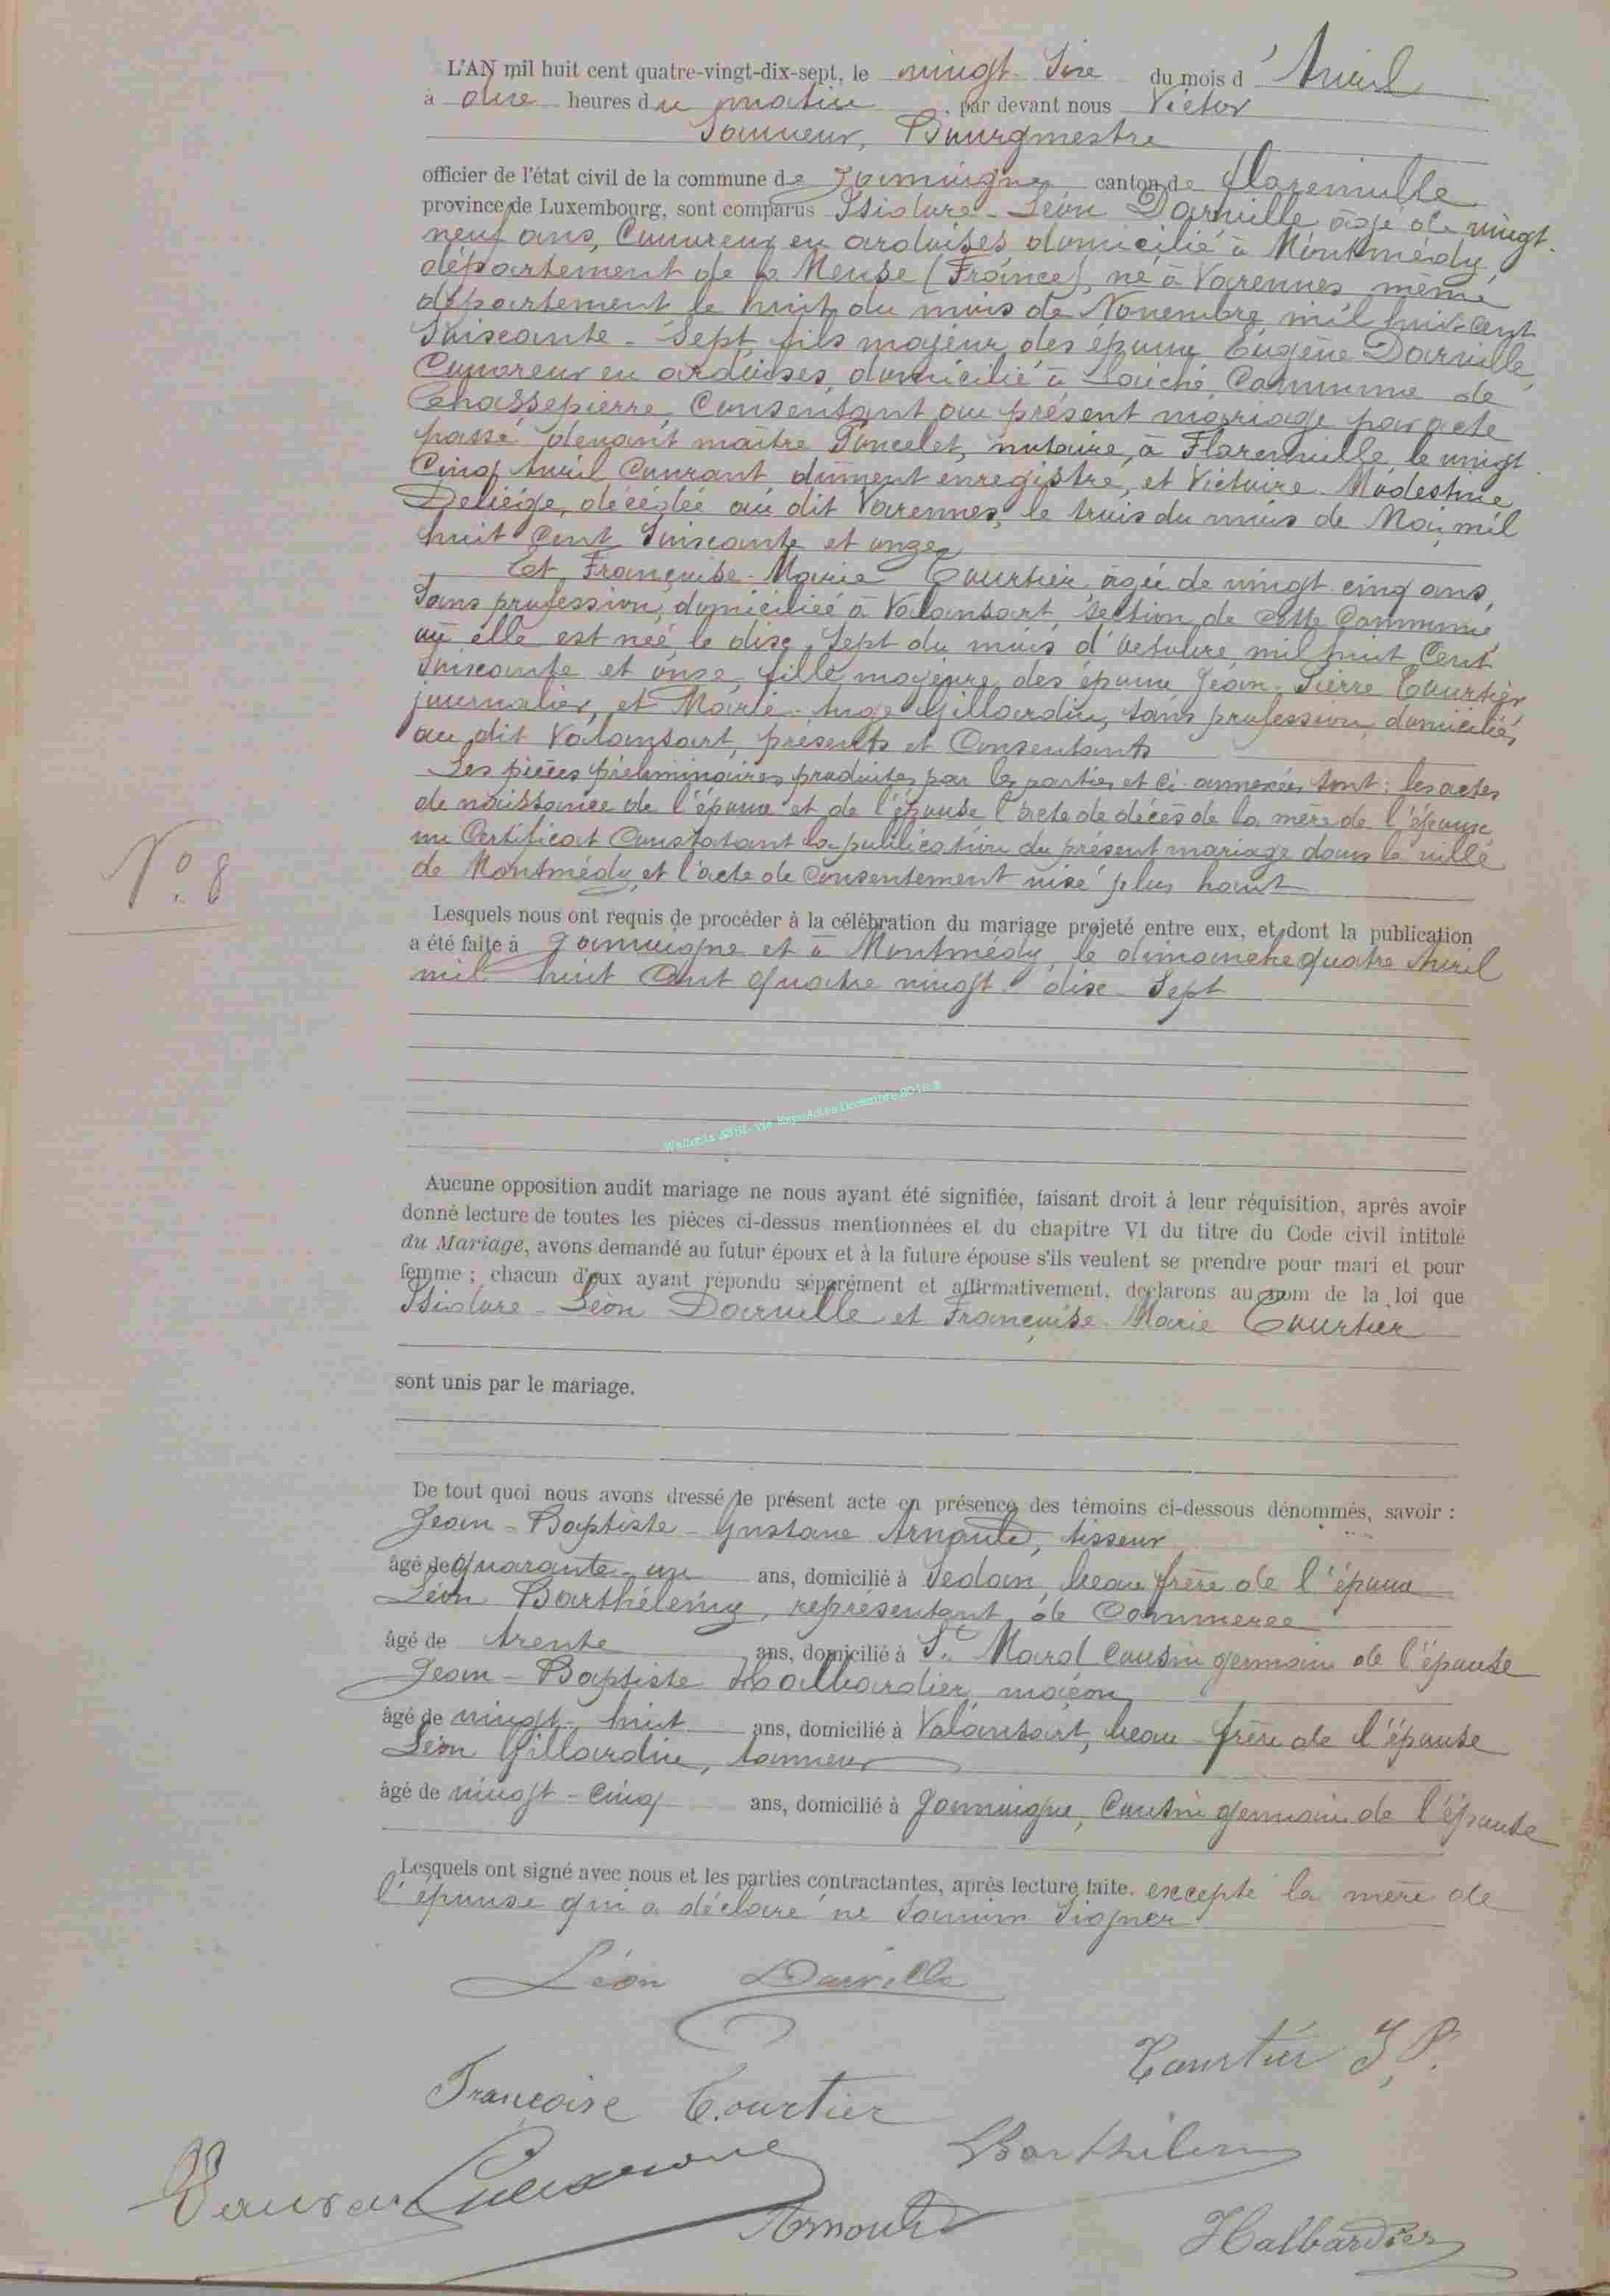 L'AN mil huit cent quatre-vingt-dix-sept, le vingt-six du mois d'Avril
à onze heures du matin, par devant nous Victor
Bourgmestre
officier de l'état civil de la commune de Jamoigne canton de Florenville
province de Luxembourg, sont comparus Isidore-Léon Darville âgé de vingt-
neuf ans, Couvreur en ardoises domicilié à Montmédy,
département de la Meuse (France), né à Varennes, même
département le huit du mois de Novembre mil huit Cent
Soixante-Sept, fils majeur des époux Eugène Darville,
Couvreur en ardoises, domicilié à Laiche, Commune de
Chassepierre, Consentant au présent mariage par acte
passé devant maître Poncelet, notaire, à Florenville, le vingt-
Cinq Avril Courant dûment enregistré, et Victoire-Modestine
Deliège, décédée au dit Varennes, le trois du mois de Mai mil
huit Cent Soixante et onze
Et Françoise-Marie Courtier âgée de vingt-cinq ans,
Sans profession, domiciliée à Valansart, section de cette Commune,
où elle est née, le dix-Sept du mois d'octobre, mil huit Cent
Soixante et onze, fille majeure des époux Jean-Pierre Courtier
journalier, et Marie-Ange Gillardin, sans profession, domiciliés
au dit Valansart, présents et Consentants
Les pièces préliminaires produites par les parties et ci-annexées sont: les actes
de naissance de l'époux et de l'épouse l'acte de décès de la mère de l'époux
un Certificat Constatant la publication du présent mariage dans la ville
de Montmédy et l'acte de Consentement visé plus haut
N° 8
Lesquels nous ont requis de procéder à la célébration du mariage projeté entre eux, et dont la publication
a été faite à Jamoigne et à Montmédy, le dimanche quatre Avril
mil huit Cent quatre vingt-dix-Sept
Aucune opposition audit mariage ne nous ayant été signifiée, faisant droit à leur réquisition, après avoir
donné lecture de toutes les pièces ci-dessus mentionnées et du chapitre VI du titre du Code civil intitulé
du Mariage, avons demandé au futur époux et à la future épouse s'ils veulent se prendre pour mari et pour
femme ; chacun d'eux ayant répondu séparément et affirmativement, déclarons au nom de la loi que
Isidore-Léon Darville et Françoise-Marie Courtier
sont unis par le mariage.
De tout quoi nous avons dressé le présent acte en présence des témoins ci-dessous dénommés, savoir :
Jean-Baptiste-Gustave Arnould, tisseur
âgé de quarante-un ans, domicilié à Sedan, beau frère de l'époux
Léon Barthélemy, représentant de Commerce
âgé de trente ans, domicilié à St Mard Cousin germain de l'épouse
Jean-Baptiste Halbardier, maçon
âgé de vingt-huit ans, domicilié à Valansart, beau-frère de l'épouse
Léon Gillardin, tanneur
âgé de vingt-Cinq ans, domicilié à Jamoigne, Cousin germain de l'épouse
Lesquels ont signé avec nous et les parties contractantes, après lecture faite. excepté la mère de
l'épouse qui a déclaré ne Savoir Signer
Léon Darville
Courtier J. P.
Françoise Courtier
Barthélemy
Arnould
Halbardier